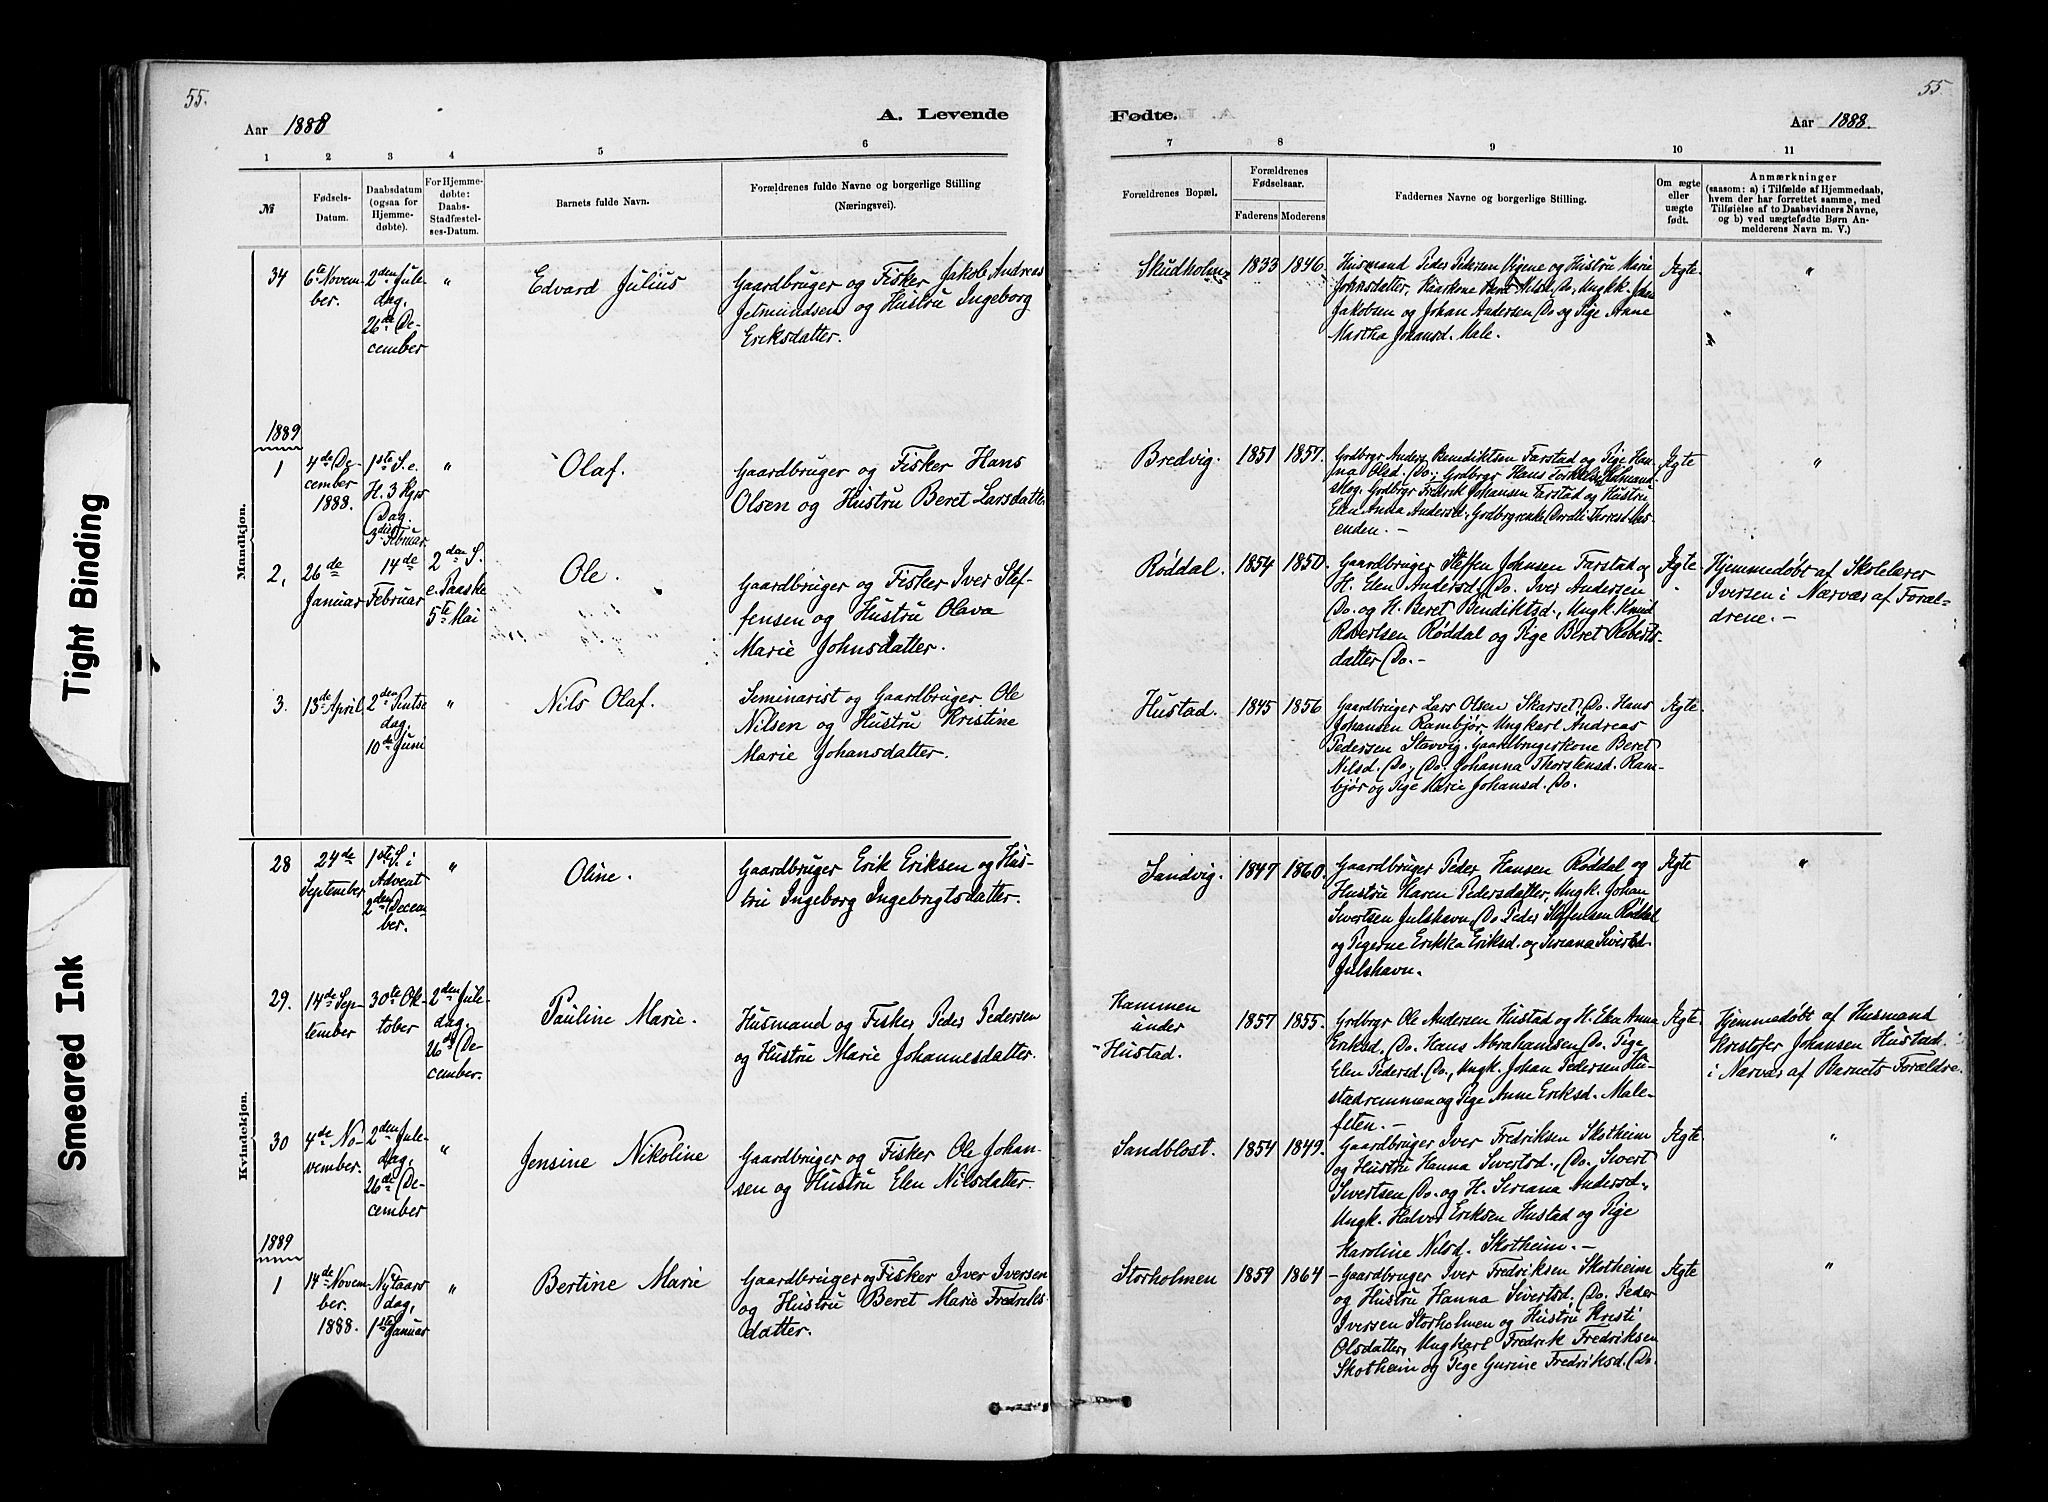 55.
55
Aar 1888
A. Levende
Fødte.
Aar 1888.
1 2 3 4 5 6
7 8 9 10 11
№
Fødsels-
Datum.
Daabsdatum
(ogsaa for
Hjemme-
døbte).
For Hjemme-
døbte:
Daabs-
Stadfæstel-
ses-Datum.
Barnets fulde Navn.
Forældrenes fulde Navne og borgerlige Stilling
(Næringsvei).
Forældrenes Bopæl.
Forældrenes
Fødselsaar.
Faderens Moderens
Faddernes Navne og borgerlige Stilling.
Om ægte
eller
uægte
født.
Anmærkninger
(saasom: a) i Tilfælde af Hjemmedaab,
hvem der har forrettet samme, med
Tilføielse af to Daabsvidners Navne,
og b) ved uægtefødte Børn An-
melderens Navn m. V.)
Mandkjøn.
34
6te Novem-
ber.
2den Jule-
dag,
26de De-
cember
"
Edvard Julius
Gaardbruger og Fisker Jakob Andreas
Jetmundsen og Hustru Ingeborg
Eriksdatter.
Skudholm
1833 1846.
Husmand Peder Pedersen Vigene og Hustru Marie
Johnsdatter, Ungk. John
Jakobsen og Johan Andersen Do og Pige Anne
Martha Johansd. Male.
Ægte
"
"
1889
1
4de De-
cember
1888.
1ste S. e.
H. 3 Kgrs
Dag.
3die Februar
"
Olaf.
Gaardbruger og Fisker Hans
Olsen og Hustru Beret Larsdatter
Bredvig.
1851 1857.
Grdbrgr Anders Benediktsen Farstad og Pige Han-
na Olsd. Do; Grdbrgr Hans
skog, Grdbrgr Fredrik Johansen Farstad og Hustru
Elen Anna Andersd,
enden. –
Ægte
"
2,
26de
Januar
14de
Februar
2den S.
e. Paaske
5te Mai
Ole.
Gaardbruger og Fisker Iver Stef-
fensen og Hustru Olava
Marie Johnsdatter.
Røddal.
1854 1850.
Gaardbruger Steffen Johnsen Farstad og
H. Elen Andersd, Do. Iver Andersen
Do. og H. Beret Bendiktsd., Ungk. Knud
Robertsen Røddal og Pige Beret Roberts-
datter Do. –
Ægte
Hjemmedøbt af Skolelærer
Iversen i Nærvær af Foræl-
drene. –
3.
13de April
2den Pintse
dag,
10de Juni
"
Nils Olaf.
Seminarist og Gaardbruger Ole
Nilsen og Hustru Kristine
Marie Johansdatter.
Hustad.
1845 1856
Gaardbruger Lars Olsen Skarset, Do. Hans
Johansen Rambjør, Ungkarl Andreas
Pedersen Stavvig. Gaardbrugerkone Beret
Nilsd. Do, Do. Johanna Thorstensd. Ram-
bjør og Pige Marie Johansd. Do.
Ægte
Kvindekjøn.
28
24de
September
1ste S. i
Advent
2den Decem-
ber.
"
Oline.
Gaardbruger Erik Eriksen og Hus-
tru Ingeborg Ingebrigtsdatter.
Sandvig.
1847 1860.
Gaardbruger Peder Hansen Røddal og
Hustru Karen Pedersdatter, Ungk. Johan
Sivertsen Julshavn, Do. Peder Steffensen Røddal
og Pigerne Erikka Eriksd. og Seriana Sivertsd.
Julshavn.
Ægte
"
29.
14de Sep-
tember
30te Ok-
tober
2den Jule-
dag,
26de De-
cember.
Pauline Marie.
Husmand og Fisker Peder Pedersen
og Hustru Marie Johannesdatter.
Hammen
under
Hustad.
1857 1855.
Grdbrgr Ole Andersen Hustad og H. Eka Anna
Eriksd. Do. Hans Abrahamsen Do. Pige
Elen Pedersd. Do., Ungk. Johan Pedersen Hu-
stadremmen og Pige Anne Eriksd. Male-
feten. –
Ægte
Hjemmedøbt af Husmand
Kristofer Johansen Hustad
i Nærvær af Barnets Forældre.
30
4de No-
vember.
2den Jule-
dag,
26de De-
cember
"
Jensine Nikoline
Gaardbruger og Fisker Ole Johan-
sen og Hustru Elen Nilsdatter.
Sandblost.
1854 1849.
Gaardbruger Iver Fredriksen Skotheim
og Hustru Hanna Sivertsd., Do. Sivert
Sivertsen Do. og H. Seriana Andersd.,
Ungk. Halvor Eriksen Hustad og Pige
Karoline Nilsd. Skotheim. –
Ægte
"
1889
1
14de Novem-
ber.
1888.
Nytaars
dag,
1ste Januar
"
Bertine Marie
Gaardbruger og Fisker Iver Iversen
og Hustru Beret Marie Fredriks-
datter.
Storholmen
1859 1864
– Gaardbruger Iver Fredriksen Skotheim
og Hustru Hanna Sivertsd, Do. Peder
Iversen Storholmen og Hustru Kristi
Olsdatter, Ungkarl Fredrik Fredriksen
Skotheim og Pige Gurine Fredriksd. Do.
Ægte
"
Tight Binding
Smeared Ink